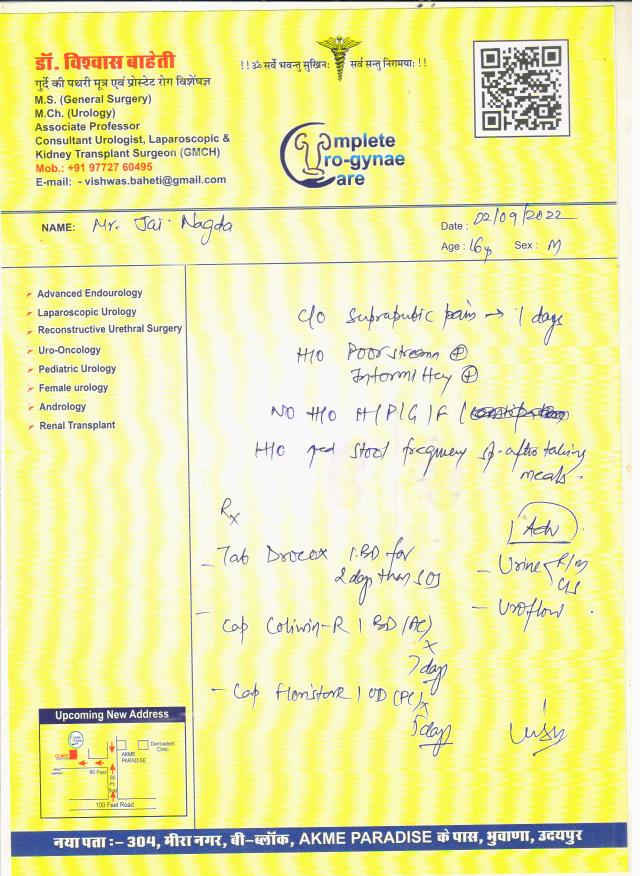 डॉ. विश्वास बाहेती
गुर्दे की पथरी मूत्र एवं प्रोस्टेट रोग विशेषज्ञ
M.S. (General Surgery)
M.Ch. (Urology)
Associate Professor
Consultant Urologist, Laparoscopic &
Kidney Transplant Surgeon (GMCH)
Mob.: +91 97727 60495
E-mail: - vishwas.baheti@gmail.com
!!ॐ सर्वे भवन्तु सुखिनः सर्व सन्तु निरामयाः!!
Complete
Uro-gynae
Care
NAME: Mr. Jai Nagda
Date: 02/09/2022
Age: 16y Sex: M
Advanced Endourology
Laparoscopic Urology
Reconstructive Urethral Surgery
Uro-Oncology
Pediatric Urology
Female urology
Andrology
Renal Transplant
C/o Suprapubic pain → 1 days
H/o Poor stream ⊕
Intermittency ⊕
NO H/o H/P/G/F/
H/o stool frequency after taking
meals.
Rx
Adv
- Tab Drocox 1 BD for
2 day then SOS
- Urine R/M
C/S
- Uroflow
- Cap Coliwin-R 1 BD (AC)
x
7 day
- Cap 1 OD (PC) x
5 day
Upcoming New Address
CLINIC
AKME
PARADISE
Dermadent
Clinic
60 Feet
60
Ft.
100 Feet Road
नया पता :- 304, मीरा नगर, बी-ब्लॉक, AKME PARADISE के पास, भुवाणा, उदयपुर